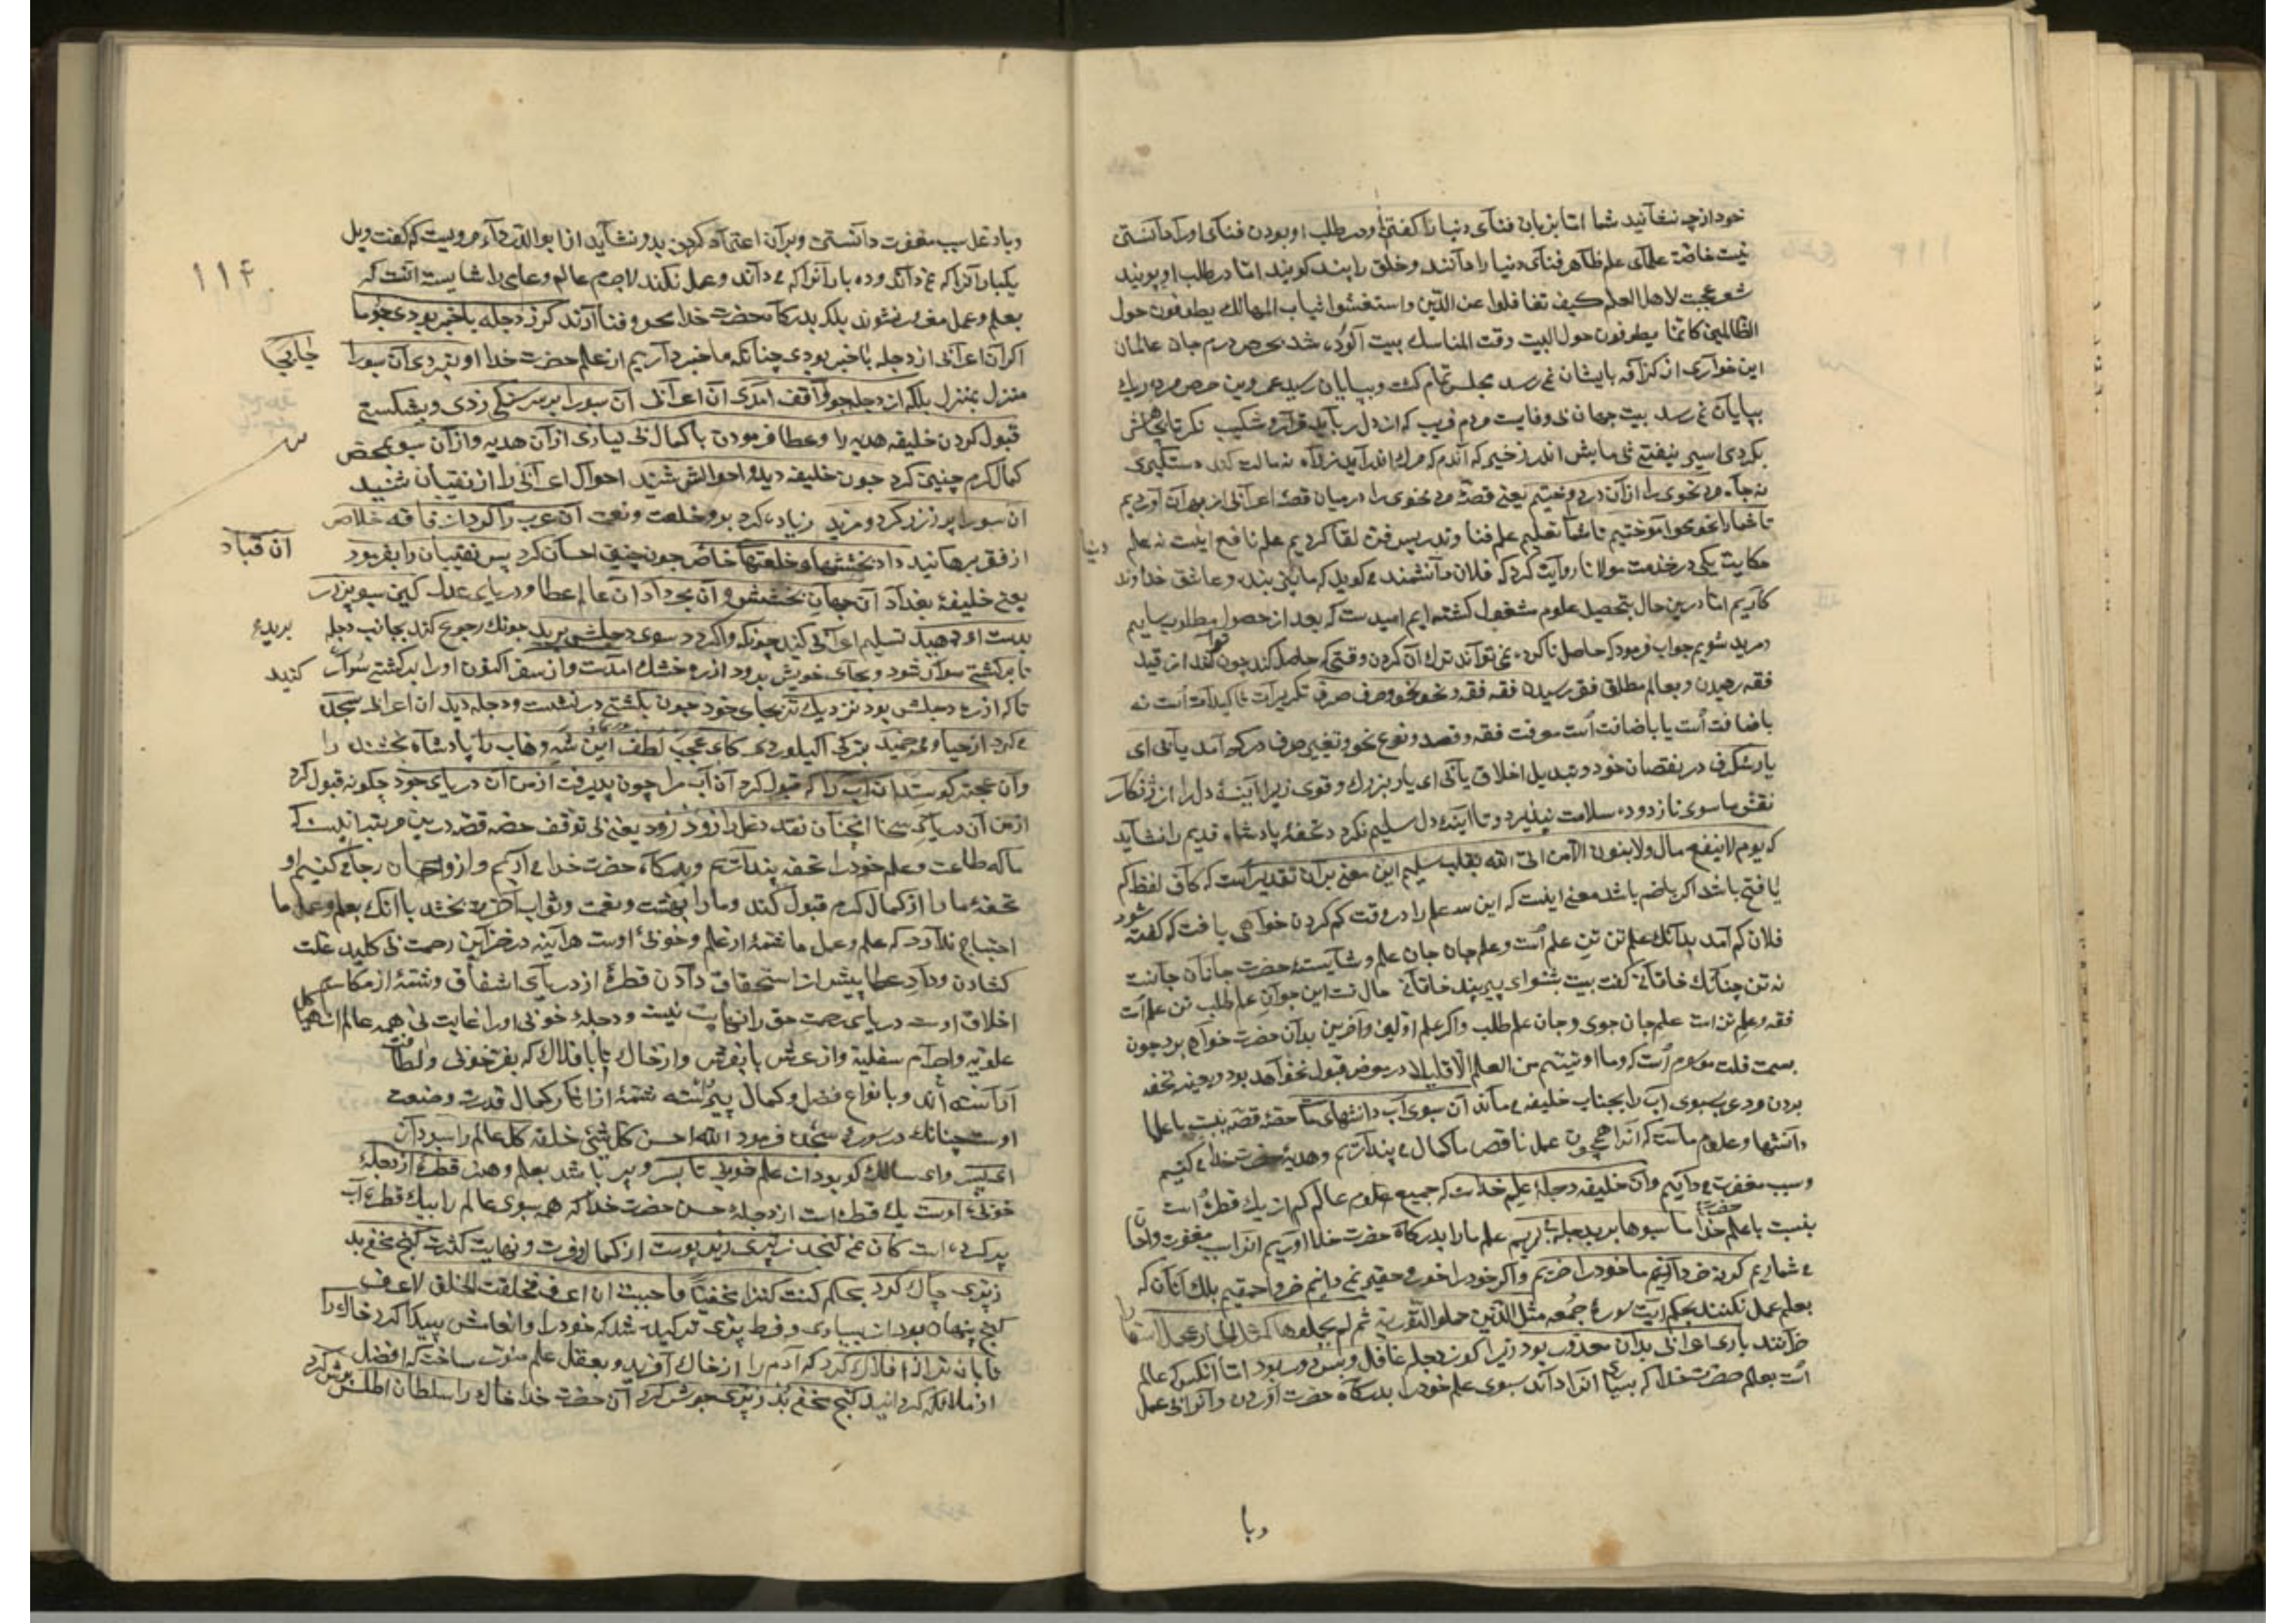 خود از چه نغانید شما اما بزبان فنای دنیا را گفتن و در طلب او بودن فنای او را دانستن
نیست خاصّه علمای علم ظاهر فنای دنیا را دانند و خلق را پند کویند اما در طلب او پویند
شعر عجبت لاهل العلم کیف تغافلوا عن الدّین واستغشوا ثیاب المهالك یطوفون حول
الظالمین کانّما یطوفون حول البیت وقت المناسك بیت شد حرص درم جان عالمان
این خواری از کزافه بایشان نمی رسد مجلس تمام کشت و بپایان رسید عمر وین حرص مرده ریك
بپایان نمی رسد بیت جهان بی وفایست مردم فریب که از دل رباید قرار و شکیب نکر تا بجاهش
نکردی اسیر نیفتی بی مایش اندر زخیر که آندم که مرك اندر آید ز راه نه مالت کند دستکیری
نه جاه مرد نحوی را از آن در دوختیم یعنی قصّۀ مرد نحوی را درمیان قصۀ اعرابی از بهر آن آوردیم
تا شما را نحو محو آموختیم تا شما تعلیم علم فنا و تدریس فن لقا کردیم علم نافع اینست نه علم
دنیا
حکایت یکی در خدمت مولانا روایت کرد که فلان دانشمند می کوید که ما نیز بنده و عاشق خداوند
کاریم اما درین حال بتحصیل علوم مشغول کشته ایم امیدست که بعد از حصول مطلوب بیاییم
و مرید شویم جواب فرمود که حاصل ناکرده نمی تواند ترك آن کردن وقتی که حاصل کند چون تواند از قید
فقه رهیدن و بعالم مطلق فقر رسیدن فقه فقه و نحو نحو و صرف صرف تکریرات تاکیدات است نه
باضافت است یا باضافت است معرفت فقه و قصد و نوع نحو و تغییر صرف در کم آمد یابی ای
یار شکرف در نقصان خود و تبدیل اخلاق یابی ای یار بزرك و قوی زیرا آینۀ دل را از ژنکار
نقش ماسوی تا زدوده سلامت نپذیرد و تا آینۀ دل سلیم نکردد تحفۀ پادشاه قدیم را نشاید
که یوم لا ینفع مال ولا بنون الا من اتی الله بقلب سلیم این معنی بر آن تقدیر است که کاف لفظ کم
با فتح باشد اکر با ضم باشد معنی اینست که این سه علم را در وقت کم کردن خواهی یافت که کفته شود
فلان کم آمد بدانك علم تن تن علم است و علم جان جان علم و شایستۀ حضرت جانان جانست
نه تن چنانك خاقانی کفت بیت بشنو ای پیر پند خاقانی حال تست این جوان علم طلب تن علم است
فقه و علم تن است علم جان جوی و جان علم طلب و اکر علم اولین و آخرین بدان حضرت خواهی برد چون
بسمت قلت موسوم است که وما اوتیتم من العلم الّا قلیلا در معرض قبول نخواهد بود و بعینه تحفه
بردن مرد عرب سبوی آب را بجناب خلیفه می ماند آن سبوی آب دانشهای ما حصّۀ قصّه نسبت با علما
دانشها و علوم ماست که آنرا همچون عمل ناقص ما کمال می پنداریم و هدیۀ حضرت خدا می کنیم
و سبب مغفرت می دانیم وان خلیفه دجلۀ علم خداست که جمیع علوم عالم کم از یك قطره است
بنسبت با علم خدا ما سبوها پر بدجله می بریم علم ما را بدرکاه حضرت خدا آوریم آنرا سبب مغفرت
می شماریم کر نه خر دانیم ما خود را خریم و اکر خود را خوار و حقیر نمی دانیم خر و احمقیم بلك آنان که
بعلم عمل نکنند بحکم آیت سورۀ جمعه مثل الّذین حملوا التوریة ثم لم یحملوها کمثل الحمار یحمل اسفارا
خرانند باری اعرابی بدان معذور بود زیرا کو ز دجله غافل و بس دور بود اما آنکس که عالم
است بعلم حضرت خدا که بسیار آنرا داند سبوی علم خود را بدرکاه حضرت آوردن و آنرا بی عمل
وبا
وباد غل سبب مغفرت دانستن و بر آن اعتماد کردن بدو نشاید از ابو الدرداء مرویست که کفت ویل
یکبار آنرا که نمی داند و ده بار آنرا که می داند و عمل نکند لاجرم عالم و عامی را شایسته آنست که
۱۱۴
بعلم و عمل مغرور نشوند بلکه بدرکاه حضرت خدا بمحو و فنا آیند کر ز دجله باخبر بودی چو ما
اکر آن اعرابی از دجله باخبر بودی چنانکه ما خبر داریم از علم حضرت خدا او نبردی آن سبو را
جابجا
منزل بمنزل بلکه از دجله چو واقف آمدی آن اعرابی آن سبو را بر سر سنکی زدی و بشکستی
قبول کردن خلیفه هدیه را و عطا فرمودن با کمال بی نیازی از آن هدیه و از آن سبو بمحض
کمال کرم چنین کرد چون خلیفه دید و احوالش شنید احوال اعرابی را از نقیبان شنید
آن سبو را پر ز زر کرد و مزید زیاده کرد برو خلعت و نعمت آن عرب را کرد از فاقه خلاص
از فقر برهانید داد بخششها و خلعتهای خاص چون چنین احسان کرد پس نقیبان را بفرمود
آن قباد
یعنی خلیفۀ بغداد آن جهان بخشش و آن بحر داد آن عالم عطا و دریای عدل کین سبو پر زر
بدست او دهید تسلیم اعرابی کنید چونکه واکردد سوی دجلش برید چونك رجوع کند بجانب دجله
برید
تا بر کشتی سوار شود و بجای خویش برود از ره خشك آمدست و از سفر اکنون او را بر کشتی سوار کنید
تا که از ره دجلش بود نزدیك تر بجای خود چون بکشتی در نشست و دجله دید آن اعرابی سجده
می کرد از حیا و می خمید بزبان کای عجب لطف این شه وهاب را پادشاه بخشنده را
وآن عجبتر کو ستد آن آب را که قبول کرد آن آب مرا چون پذیرفت از من آن دریای جود چکونه قبول کرد
از من آن دریای سخا آنچنان نقد دغل را زود زود یعنی بی توقف حصّه قصه درین مرتبه اینست که
ما که طاعت و علم خود را تحفه پنداشتیم و بدرکاه حضرت خدا می آریم و از و احسان رجا می کنیم او
تحفۀ ما را از کمال کرم قبول کند و ما را بهشت و نعمت و ثواب آخرت بخشد با آنك بعلم و عمل ما
احتیاج ندارد که علم و عمل ما شمّۀ از علم و خوبی اوست هرآینه در خزاین رحمت بی کلید علت
کشادن و داد عطا پیش از استحقاق دادن قطرۀ از دریای اشفاق و شمّۀ از مکارم
اخلاق اوست دریای رحمت حق را نهایت نیست و دجلۀ خوبی او را غایت نی همه عالم
علویه و اجرام سفلیه و از عرش تا بفرش و از خاك تا بافلاك که بفر خوبی و لطافت
آراسته اند و بانواع فضل و کمال پیراسته شمّۀ از آثار کمال قدرت و صنعت
اوست چنانك در سورۀ سجده فرمود الله احسن کل شیء خلقه کل عالم را سبو دان
ای پسر و ای سالك کو بود از علم خوبی تا بسر و پر باشد بعلم و هنر قطرۀ از دجلۀ
خوبی اوست یك قطره است از دجلۀ حسن حضرت خدا که همه سبوی عالم را بیك قطره آب
پر کرده است کان نمی کنجد ز پری زیر پوست از کمال وفرت و نهایت کثرت کنج مخفی بد
ز پری چاك کرد بحکم کنت کنزا مخفیّا فاحببت ان اعرف فخلقت الخلق لاعرف
کنج پنهان بود از بسیاری و فرط پری ترکیده شد که خود را پیدا کرد خاك را
تابان تر از افلاك کرد که آدم را از خاك آفرید و بعقل علم منوّر ساخت که افضل
از ملائکه کردانید کنج مخفی بد ز پری جوش کرد آن حضرت خدا خاك را سلطان اطلس پوش کرد